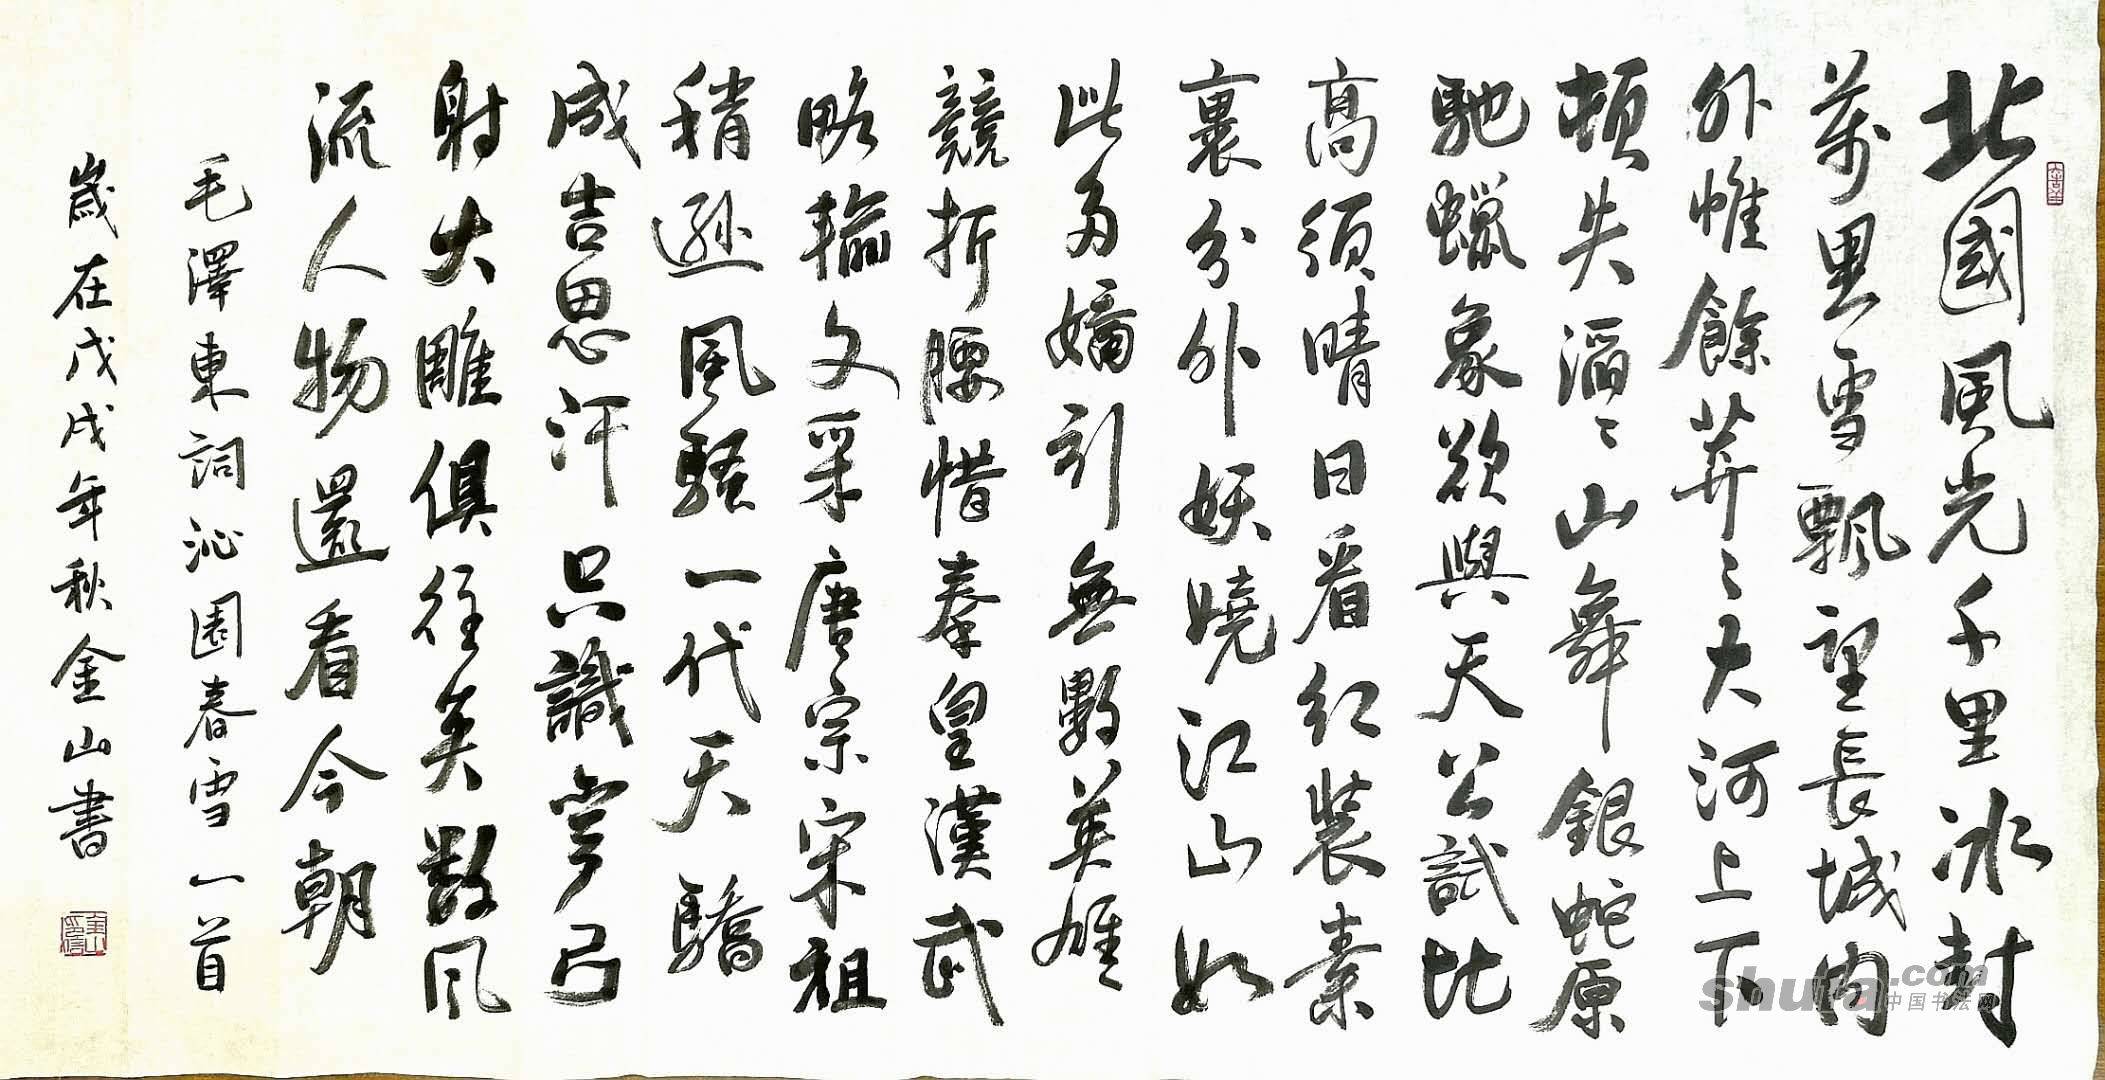 北國風光千里冰封
萬里雪飄望長城內
外惟餘莽〻大河上下
頓失滔〻山舞銀蛇原
馳蠟象欲與天公試比
高須晴日看紅裝素
裹分外妖嬈江山如
此多嬌引無數英雄
競折腰惜秦皇漢武
略輸文采唐宗宋祖
稍遜風騷一代天驕
成吉思汗只識彎弓
射大雕俱往矣數風
流人物還看今朝
毛澤東詞沁園春雪一首
歲在戊戌年秋金山書
shufa.com
中国书法网